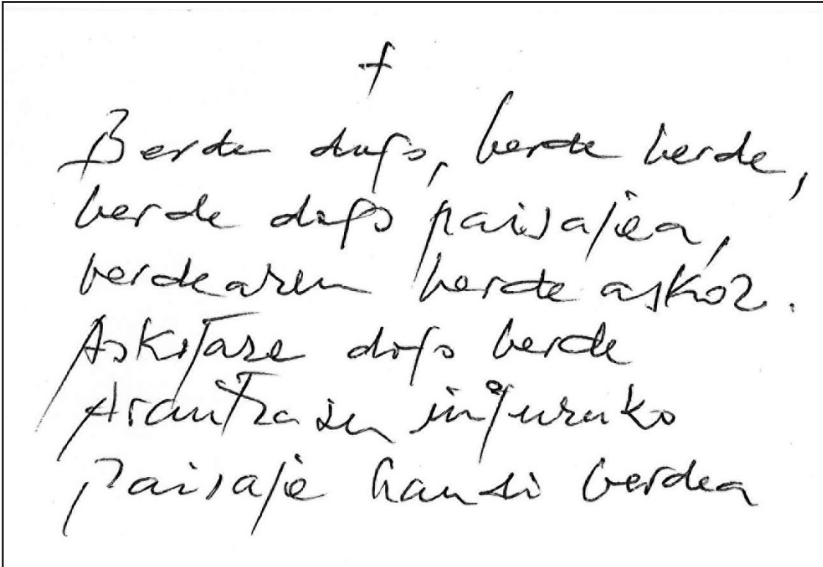 +
Berde dago, berde berde,
berde dago paisajea,
berdearen berde askoz.
dago berde
Arantzazu inguruko
Paisaje haundi berdea